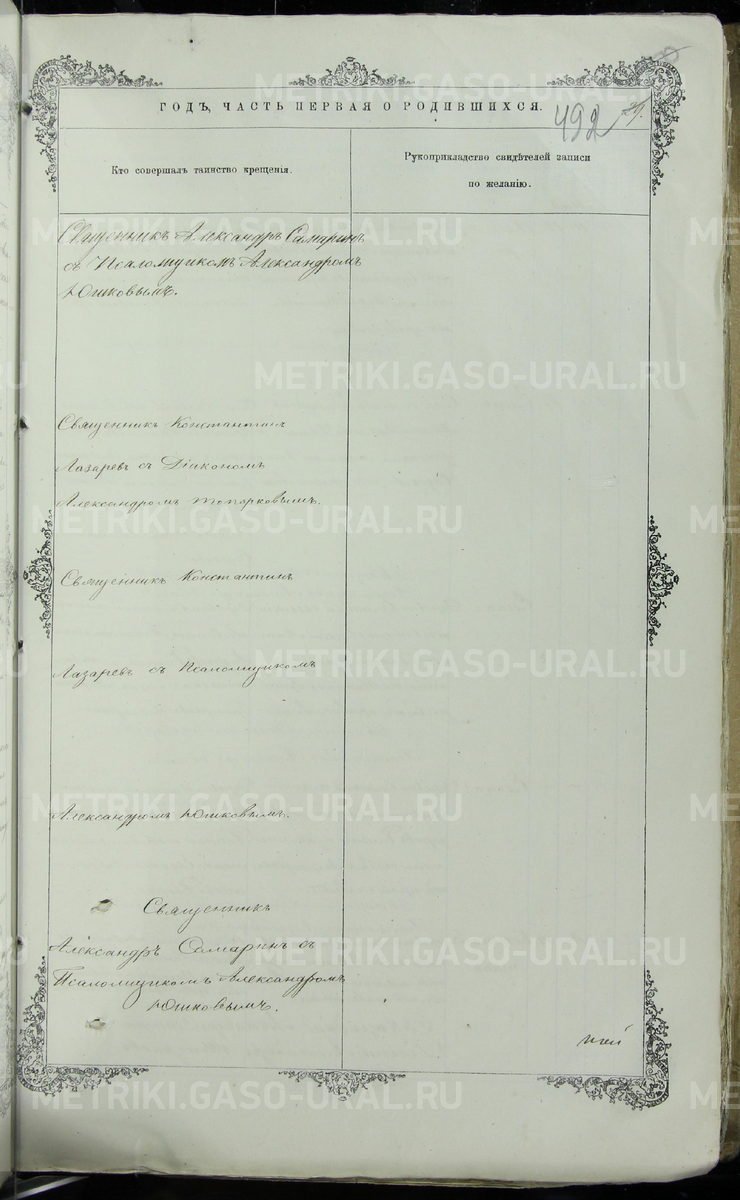 ГОДЪ, ЧАСТЬ ПЕРВАЯ О РОДИВШИХСЯ.
492
Кто совершалъ таинство крещенія.
Рукоприкладство свидѣтелей записи
по желанію.
Священникъ Александръ Самаринъ
съ Псаломщикомъ Александромъ
Юшковымъ.
Священникъ Константинъ
Лазаревъ съ Діакономъ
Александромъ Топорковымъ.
Священникъ Константинъ
Лазаревъ съ Псаломщикомъ
Александромъ Юшковымъ.
Священникъ
Александръ Самаринъ съ
Псаломщикомъ Александромъ
Юшковымъ.
METRIKI.GASO-URAL.RU